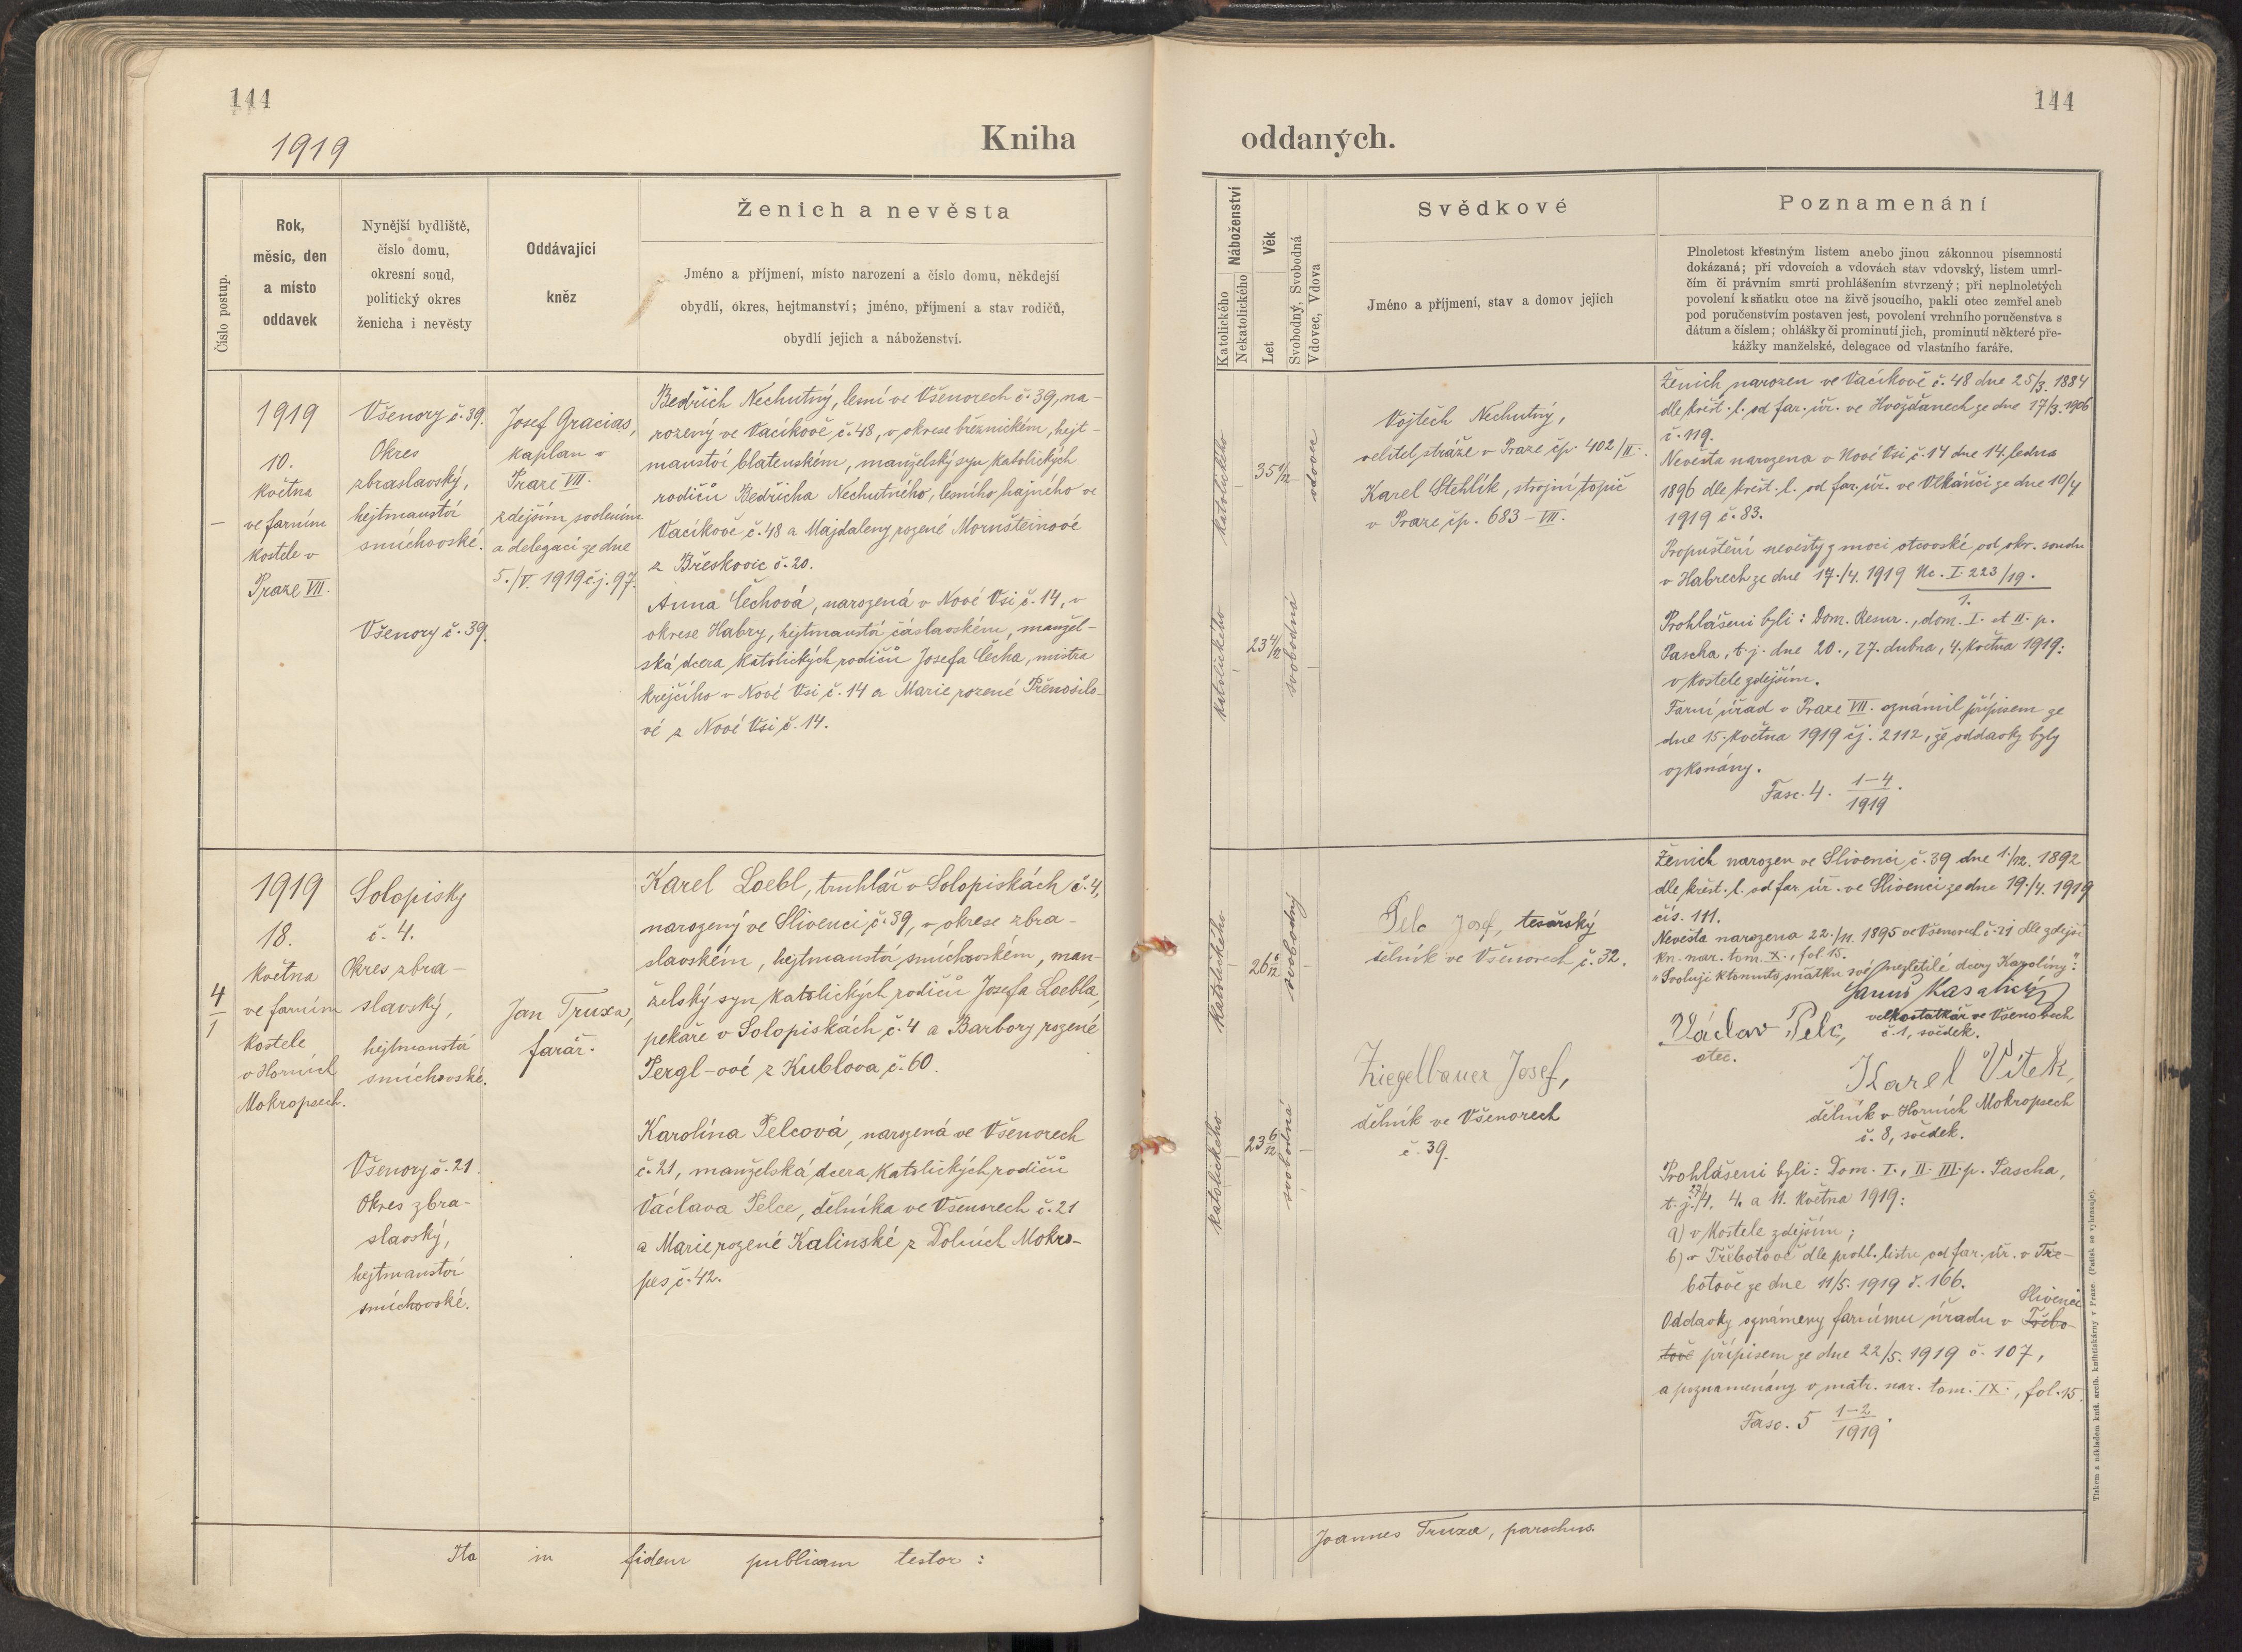 144
1919
Kniha
Číslo postup.
Rok,
měsíc, den
a místo
oddavek
Nynější bydliště,
číslo domu,
okresní soud,
politický okres
ženicha i nevěsty
Oddávající
kněz
Ženich a nevěsta
Jméno a příjmení, místo narození a číslo domu, někdejší
obydlí, okres, hejtmanství; jméno, příjmení a stav rodičů,
obydlí jejich a náboženství.
1919
10.
května
ve farním
kostele v
Praze VII.
Všenory č. 39.
Okres
zbraslavský,
hejtmanství
smíchovské.
Všenory č. 39.
Josef Gracias,
kaplan v
Praze VII.
zdejším svolením
a delegací ze dne
5./V. 1919 č.j. 97.
Bedřich Nechutný, lesní ve Všenorech č. 39, na-
rozený ve Vacíkově č. 48, v okrese březnickém, hejt-
manství blatenském, manželský syn katolických
rodičů Bedřicha Nechutného, lesního hajného ve
Vacíkově č. 48 a Majdaleny rozené Mornšteinové
z Břeskovic č. 20.
Anna Čechová, narozená v Nové Vsi č. 14, v
okrese Habry, hejtmanství čáslavském, manžel-
ská dcera katolických rodičů Josefa Čecha, mistra
krejčího v Nové Vsi č. 14 a Marie rozené Přenosilo-
vé z Nové Vsi č. 14.
4
1
1919
18.
května
ve farním
kostele
v Horních
Mokropsech.
Solopisky
č. 4.
Okres zbra-
slavský,
hejtmanství
smíchovské.
Všenory č. 21.
Okres zbra-
slavský,
hejtmanství
smíchovské.
Jan Truxa,
farář.
Karel Loebl, truhlář v Solopiskách č. 4,
narozený ve Slivenci č. 39, v okrese zbra-
slavském, hejtmanství smíchovském, man-
želský syn katolických rodičů Josefa Loebla,
pekaře v Solopiskách č. 4 a Barbory rozené
Pergl-ové z Kublova č. 60.
Karolína Pelcová, narozená ve Všenorech
č. 21, manželská dcera katolických rodičů
Václava Pelce, dělníka ve Všenorech č. 21
a Marie rozené Kalinské z Dolních Mokro-
pes č. 42.
Ita in fidem publicam testor:
144
oddaných.
Náboženství
Katolického
Nekatolického
Věk
Let
Svobodný, Svobodná
Vdovec, Vdova
Svědkové
Jméno a příjmení, stav a domov jejich
Poznamenání
Plnoletost křestným listem anebo jinou zákonnou písemností
dokázaná; při vdovcích a vdovách stav vdovský, listem umrl-
čím či právním smrti prohlášením stvrzený; při neplnoletých
povolení k sňatku otce na živě jsoucího, pakli otec zemřel aneb
pod poručenstvím postaven jest, povolení vrchního poručenstva s
dátum a číslem; ohlášky či prominutí jich, prominutí některé pře-
kážky manželské, delegace od vlastního faráře.
katolického
vdovec
katolického
23 4/12
svobodná
Vojtěch Nechutný,
velitel stráže v Praze čp. 402/II.
Karel Stehlík, strojní topič
v Praze čp. 683 – VII.
Ženich narozen ve Vacíkově č. 48 dne 25/3. 1884
dle křest. l. od far. úř. ve Hvožďanech ze dne 17/3. 1906
č. 119.
Nevěsta narozena v Nové Vsi č. 14 dne 14. ledna
1896 dle křest. l. od far. úř. ve Vlkánči ze dne 10/4
1919 č. 83.
Propuštění nevěsty z moci otcovské od okr. soudu
v Habrech ze dne 17./4. 1919 Nc. I 223/19.
1.
Prohlášeni byli: Dom. Resur., dom. I. et II. p.
Pascha, t. j. dne 20., 27. dubna, 4. května 1919:
v kostele zdejším.
Farní úřad v Praze VII. oznámil přípisem ze
dne 15. května 1919 čj. 2112, že oddavky byly
vykonány.
Fasc. 4. 1–4
1919.
katolického
svobodný
katolického
23 6/12
svobodná
Pelc Josef, tesařský
dělník ve Všenorech č. 32.
Ziegelbauer Josef,
dělník ve Všenorech
č. 39.
Ženich narozen ve Slivenci č. 39 dne 1./12. 1892
dle křest. l. od far. úř. ve Slivenci ze dne 19./4. 1919
čís. 111.
Nevěsta narozena 22./11. 1895 ve Všenorech č. 21 dle zdejší
kn. nar. tom. X., fol. 15.
"Svoluji k tomuto sňatku své nezletilé dcery Karolíny":
velkostatkář ve Všenorech
č. 1, svědek.
Václav Pelc,
otec.
Karel Vítek,
dělník v Horních Mokropsech
č. 8, svědek.
Prohlášeni byli: Dom. I., II. III. p. Pascha,
t. j. 27/4., 4. a 11. května 1919:
a) v kostele zdejším;
b) v Třebotově dle prohl. listu od far. úř. v Tře-
botově ze dne 11/5. 1919 č. 166.
Slivenci
Oddavky oznámeny farnímu úřadu v Třebo-
tově přípisem ze dne 22/5. 1919 č. 107,
a poznamenány v matr. nar. tom. IX., fol. 15.
Fasc. 5 1–2
1919.
Joannes Truxa, parochus.